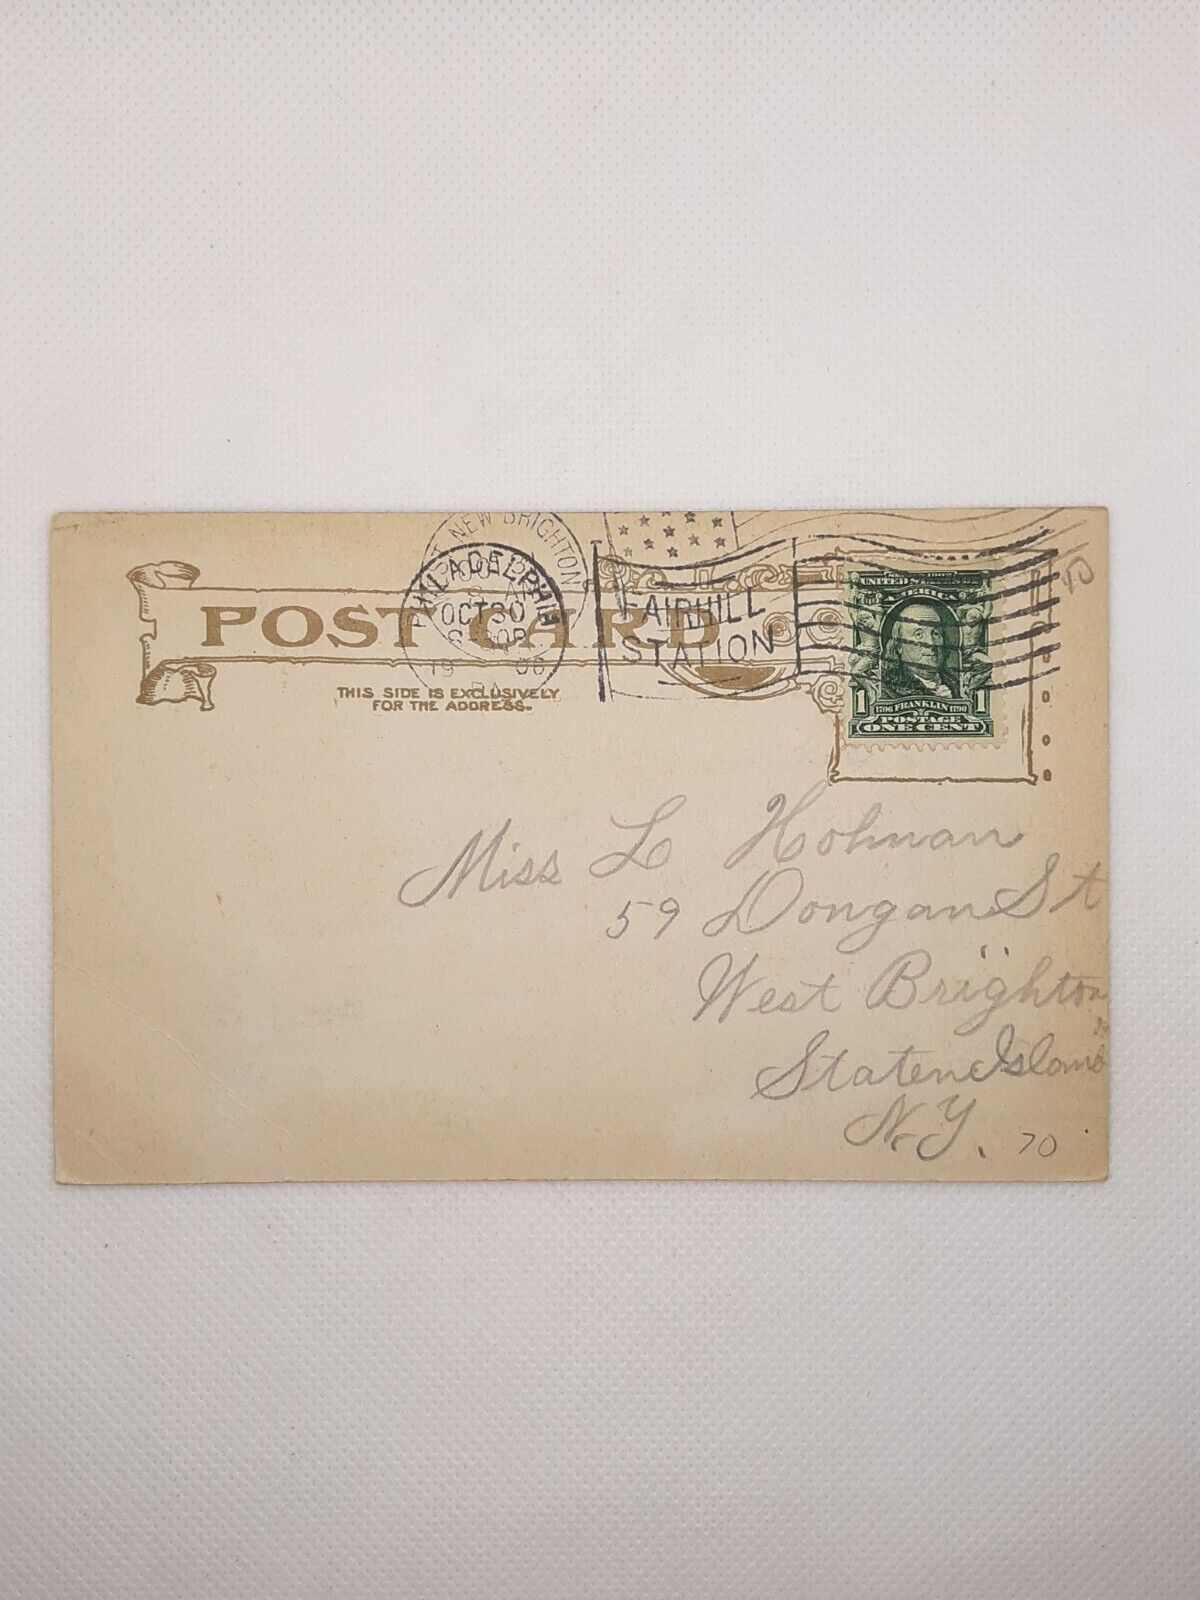 NEW BRIGHTON
PHILADELPHIA
OCT 30
PA
FAIRHILL
STATION
POST CARD
THIS SIDE IS EXCLUSIVELY
FOR THE ADDRESS.
UNITED STATES OF
AMERICA
1 1706 FRANKLIN 1790 1
POSTAGE
ONE CENT
Miss L Hohman
59 Dongan St
West Brighton
Staten Island
N.Y. 70